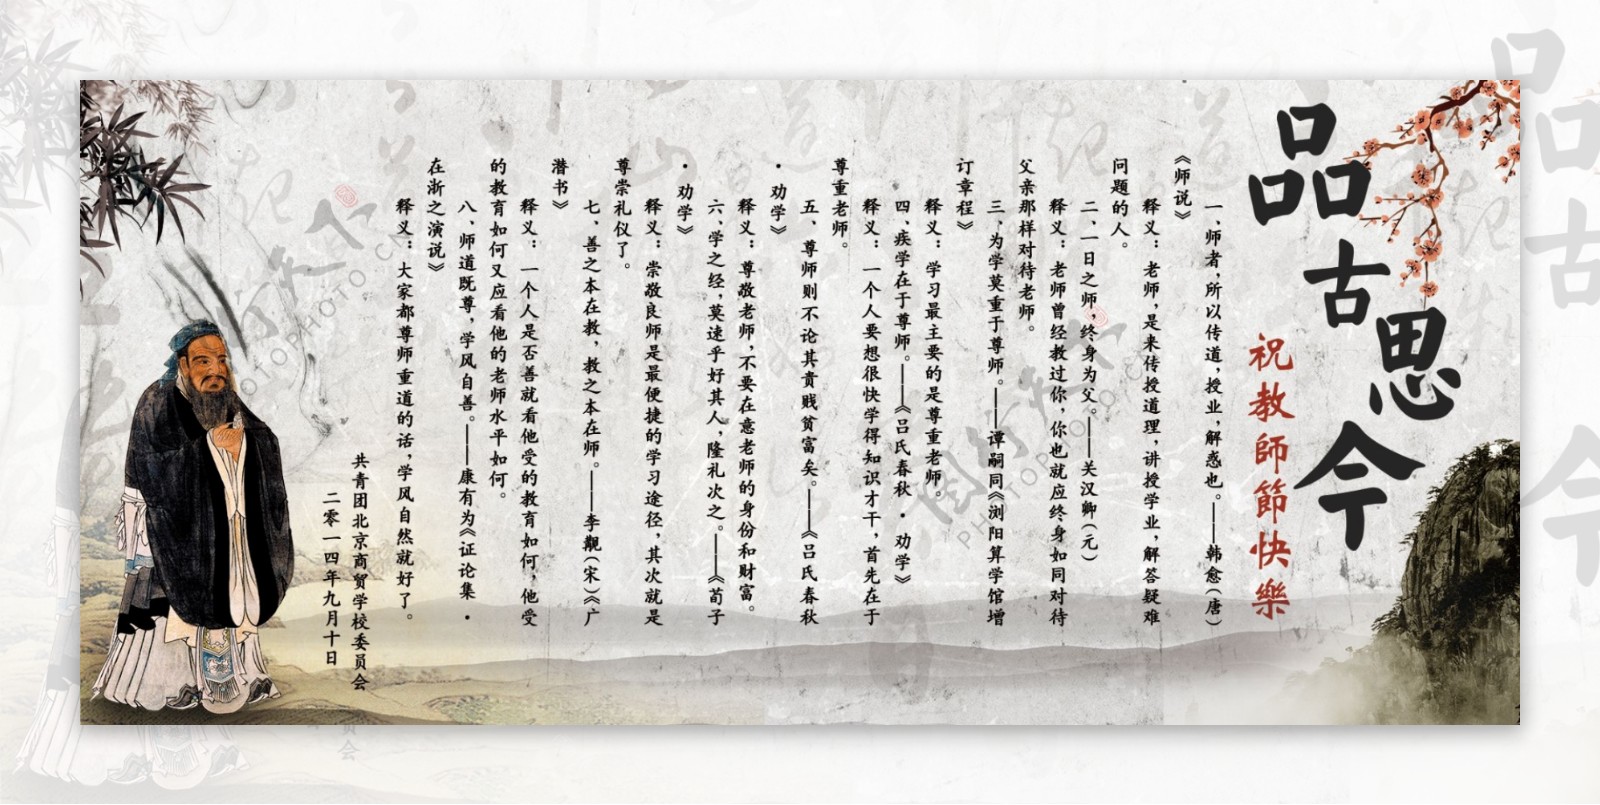 品古思今
祝教師節快樂
一、师者，所以传道，授业，解惑也。——韩愈(唐)
《师说》
释义：老师，是来传授道理，讲授学业，解答疑难
问题的人。
二、一日之师，终身为父。——关汉卿(元)
释义：老师曾经教过你，你也就应终身如同对待
父亲那样对待老师。
三、为学莫重于尊师。——谭嗣同《浏阳算学馆增
订章程》
释义：学习最主要的是尊重老师。
四、疾学在于尊师。——《吕氏春秋·劝学》
释义：一个人要想很快学得知识才干，首先在于
尊重老师。
五、尊师则不论其贵贱贫富矣。——《吕氏春秋
·劝学》
释义：尊敬老师，不要在意老师的身份和财富。
六、学之经，莫速乎好其人，隆礼次之。——《荀子
·劝学》
释义：崇敬良师是最便捷的学习途径，其次就是
尊崇礼仪了。
七、善之本在教，教之本在师。——李觏(宋)《广
潜书》
释义：一个人是否善就看他受的教育如何，他受
的教育如何又应看他的老师水平如何。
八、师道既尊，学风自善。——康有为《证论集·
在浙之演说》
释义：大家都尊师重道的话，学风自然就好了。
共青团北京商贸学校委员会
二零一四年九月十日